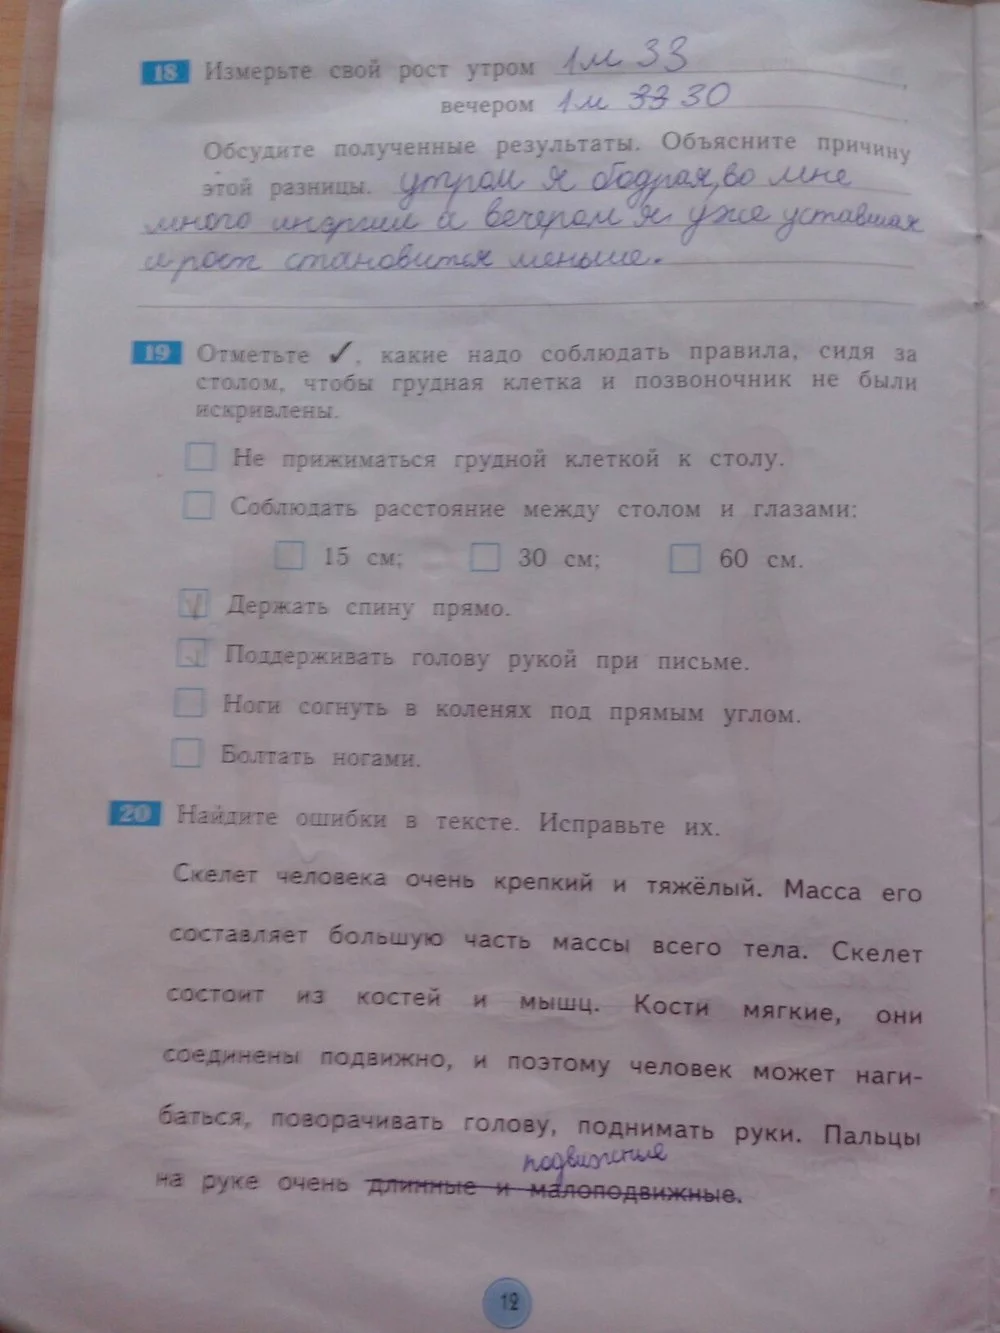 18 Измерьте свой рост утром 1м 33
вечером 1м 33 30
Обсудите полученные результаты. Объясните причину
этой разницы. утром я бодрая, во мне
много инергии а вечером я уже уставшая
и рост становится меньше.
19 Отметьте ✓, какие надо соблюдать правила, сидя за
столом, чтобы грудная клетка и позвоночник не были
искривлены.
Не прижиматься грудной клеткой к столу.
Соблюдать расстояние между столом и глазами:
15 см; 30 см; 60 см.
Держать спину прямо.
Поддерживать голову рукой при письме.
Ноги согнуть в коленях под прямым углом.
Болтать ногами.
20 Найдите ошибки в тексте. Исправьте их.
Скелет человека очень крепкий и тяжёлый. Масса его
составляет большую часть массы всего тела. Скелет
состоит из костей и мышц. Кости мягкие, они
соединены подвижно, и поэтому человек может наги-
баться, поворачивать голову, поднимать руки. Пальцы
подвижные
на руке очень длинные и малоподвижные.
12